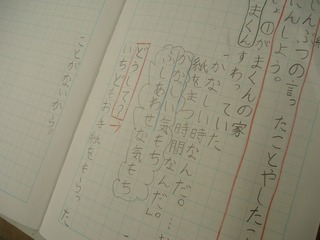 んぶつの言ったことやしたこ
んしよう。
①がまくんの家
まくん すわっていた
「かなしい時なんだ。
紙をまつ時間なんだ。…
かなしい気もち
ふしあわせな気もち
どうして?
いちどもお手紙をもらった
ことがないから